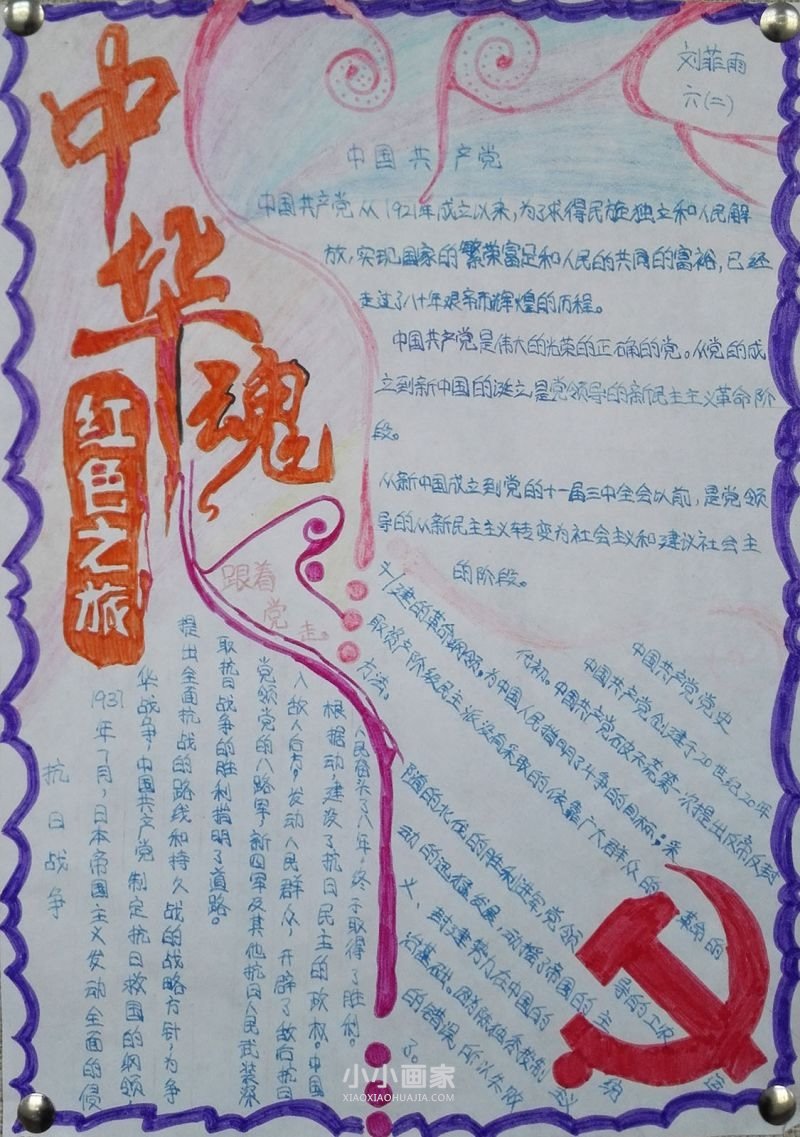 中华魂
红色之旅
刘菲雨
六(二)
中国共产党
中国共产党从1921年成立以来,为了求得民族独立和人民解
放,实现国家的繁荣富足和人民的共同的富裕,已经
走过了八十年艰辛而辉煌的历程。
中国共产党是伟大的光荣的正确的党。从党的成
立到新中国的诞立是党领导的新民主主义革命阶
段。
从新中国成立到党的十一届三中全会以前,是党领
导的从新民主主义转变为社会主义和建议社会主
的阶段。
跟着
党
走。
中国共产党党史
中国共产党创建于20世纪20年
代初。中国共产党破天荒第一次提出反帝反封
建的革命纲领,为中国人民指明了斗争的目标;采
取资产阶级民主派没有采取的、依靠广大群众的
革命的
方法。
随的水伍的胜利进军,党领
导的工农
动的迅猛发展,动摇了帝国的主
义、封建势力在中国的
治基础。因
的错误,所以失败
了。
抗日战争
1937年7月,日本帝国主义发动全面的侵
华战争,中国共产党制定抗日救国的纲领
提出全面抗战的路线和持久战的战略方针,为争
取抗日战争的胜利指明了道路。
党领党的八路军,新四军及其他抗日人民武装深
入敌人后方,发动人民群众,开辟了敌后抗日
根据动,建设了抗日民主的政权。中国
人民奋头了八年,终于取得了胜利。
小小画家
XIAOXIAOHUAJIA.COM